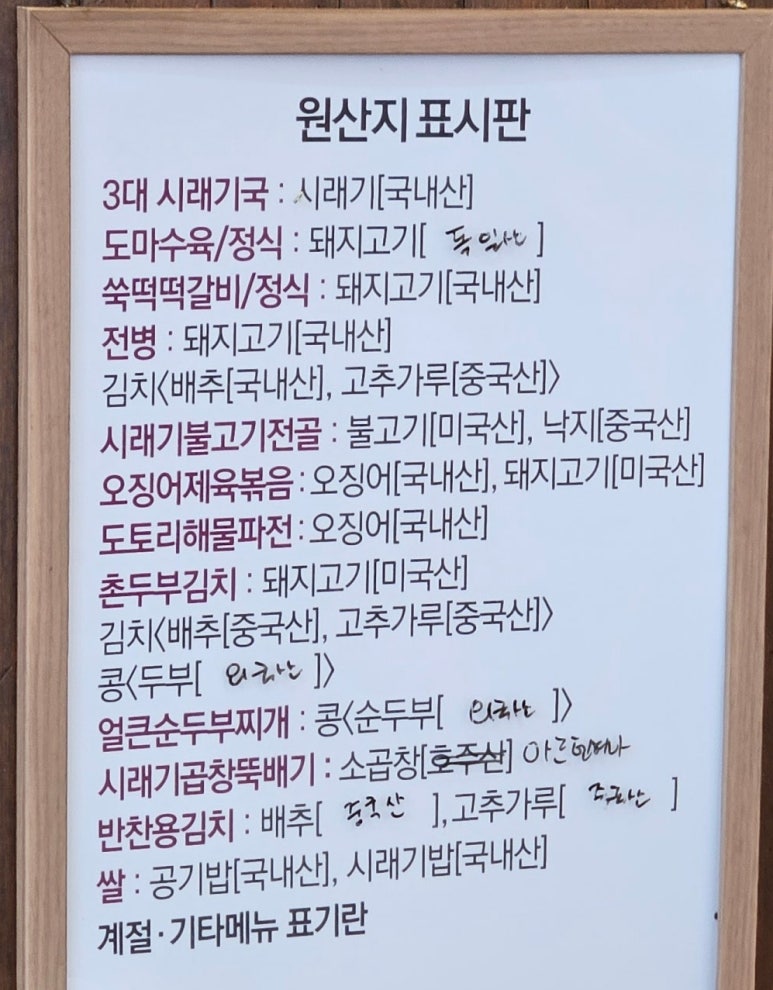 원산지 표시판
3대 시래기국 : 시래기[국내산]
도마수육/정식 : 돼지고기[ 독일산 ]
쑥떡떡갈비/정식 : 돼지고기[국내산]
전병 : 돼지고기[국내산]
김치〈배추[국내산], 고추가루[중국산]〉
시래기불고기전골 : 불고기[미국산], 낙지[중국산]
오징어제육볶음 : 오징어[국내산], 돼지고기[미국산]
도토리해물파전 : 오징어[국내산]
촌두부김치 : 돼지고기[미국산]
김치〈배추[중국산], 고추가루[중국산]〉
콩〈두부[ 외국산 ]〉
얼큰순두부찌개 : 콩〈순두부[ 외국산 ]〉
시래기곱창뚝배기 : 소곱창[호주산] 아르헨티나
반찬용김치 : 배추[ 중국산 ], 고추가루[ 중국산 ]
쌀 : 공기밥[국내산], 시래기밥[국내산]
계절·기타메뉴 표기란